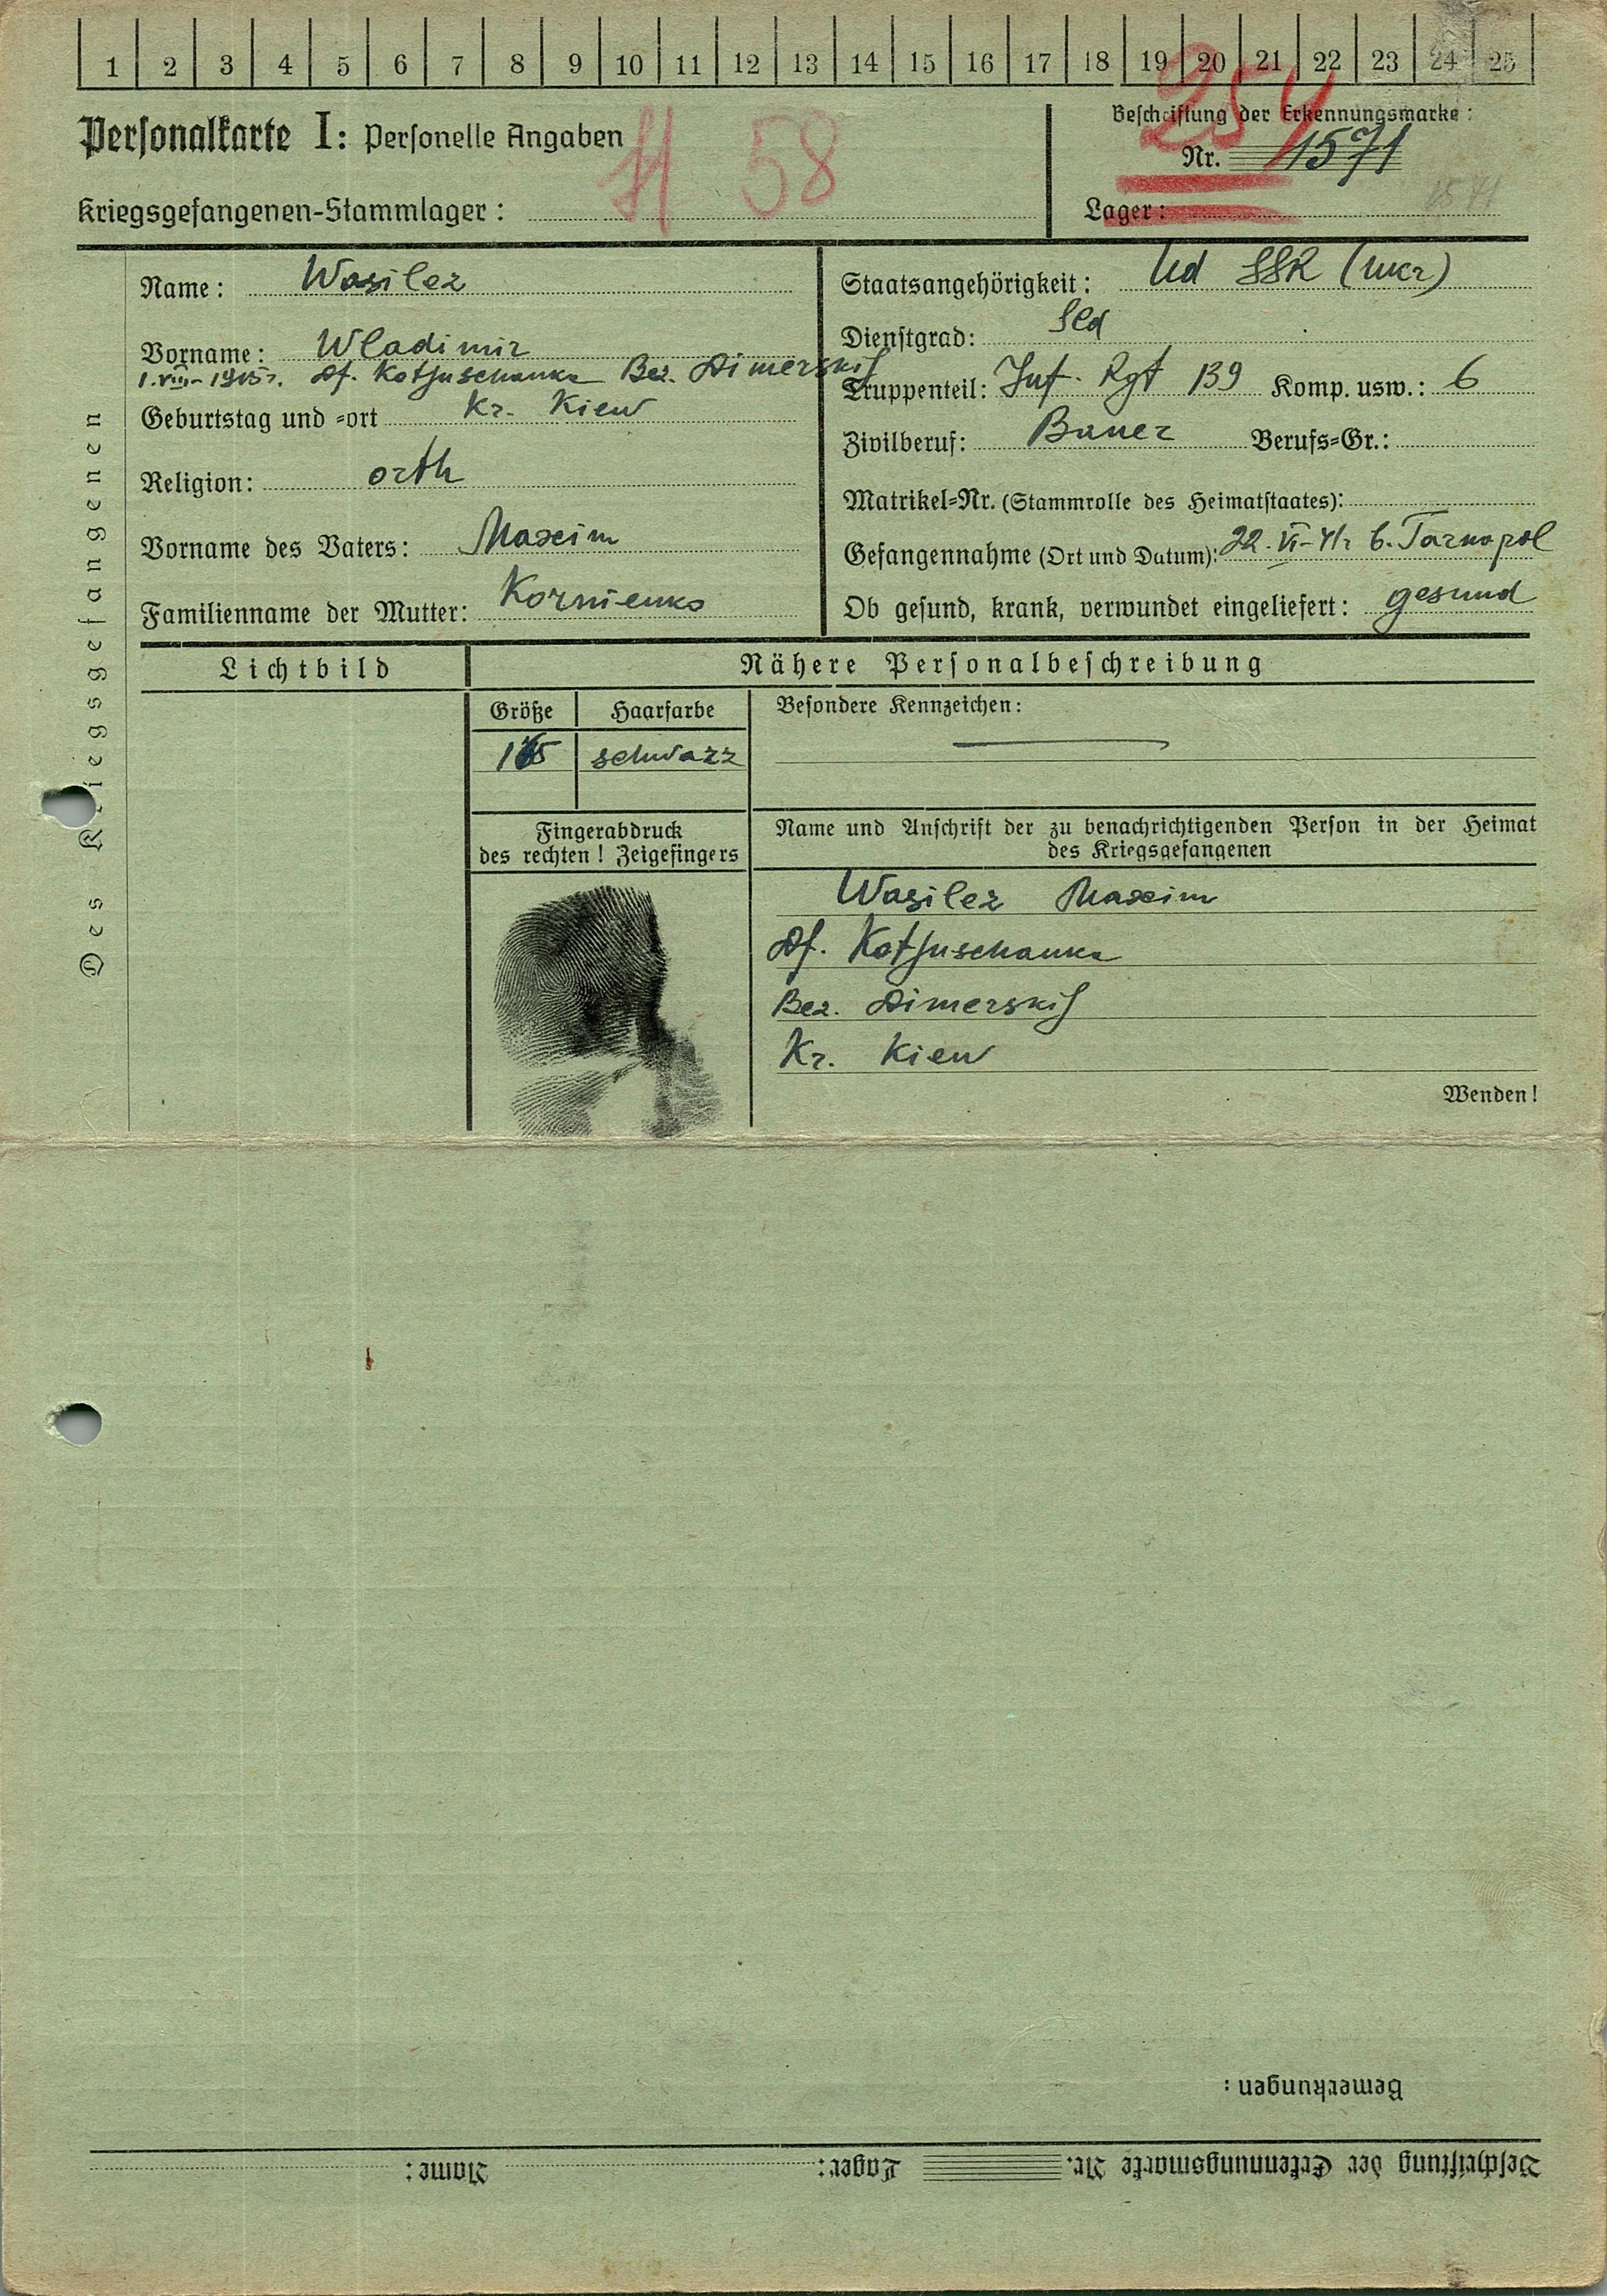 1 2 3 4 5 6 7 8 9 10 11 12 13 14 15 16 17 18 19 20 21 22 23 24 25
Personalkarte I: Personelle Angaben
58
Beschriftung der Erkennungsmarke:
254
Nr. 1571
Kriegsgefangenen-Stammlager:
Lager: 1571
Des Kriegsgefangenen
Name: Wasilez
Vorname: Wladimir
1.VIII-1915r. Df. Kotjuschanka Bez. Dimerskij
Geburtstag und -ort Kr. Kiew
Religion: orth
Vorname des Vaters: Maxim
Familienname der Mutter: Kornienko
Staatsangehörigkeit: Ud SSR (ukr)
Dienstgrad: Sld
Truppenteil: Inf. Rgt 139 Komp. usw.: 6
Zivilberuf: Bauer Berufs-Gr.:
Matrikel-Nr. (Stammrolle des Heimatstaates):
Gefangennahme (Ort und Datum): 22.VI-41r b. Tarnopol
Ob gesund, krank, verwundet eingeliefert: gesund
Lichtbild
Nähere Personalbeschreibung
Größe Haarfarbe
schwarz
Besondere Kennzeichen:
Fingerabdruck
des rechten! Zeigefingers
Name und Anschrift der zu benachrichtigenden Person in der Heimat
des Kriegsgefangenen
Wasilez Maxim
Df. Kotjuschanka
Bez. Dimerskij
Kr. Kiew
Wenden!
Bemerkungen:
Beschriftung der Erkennungsmarke Nr. Lager: Name: